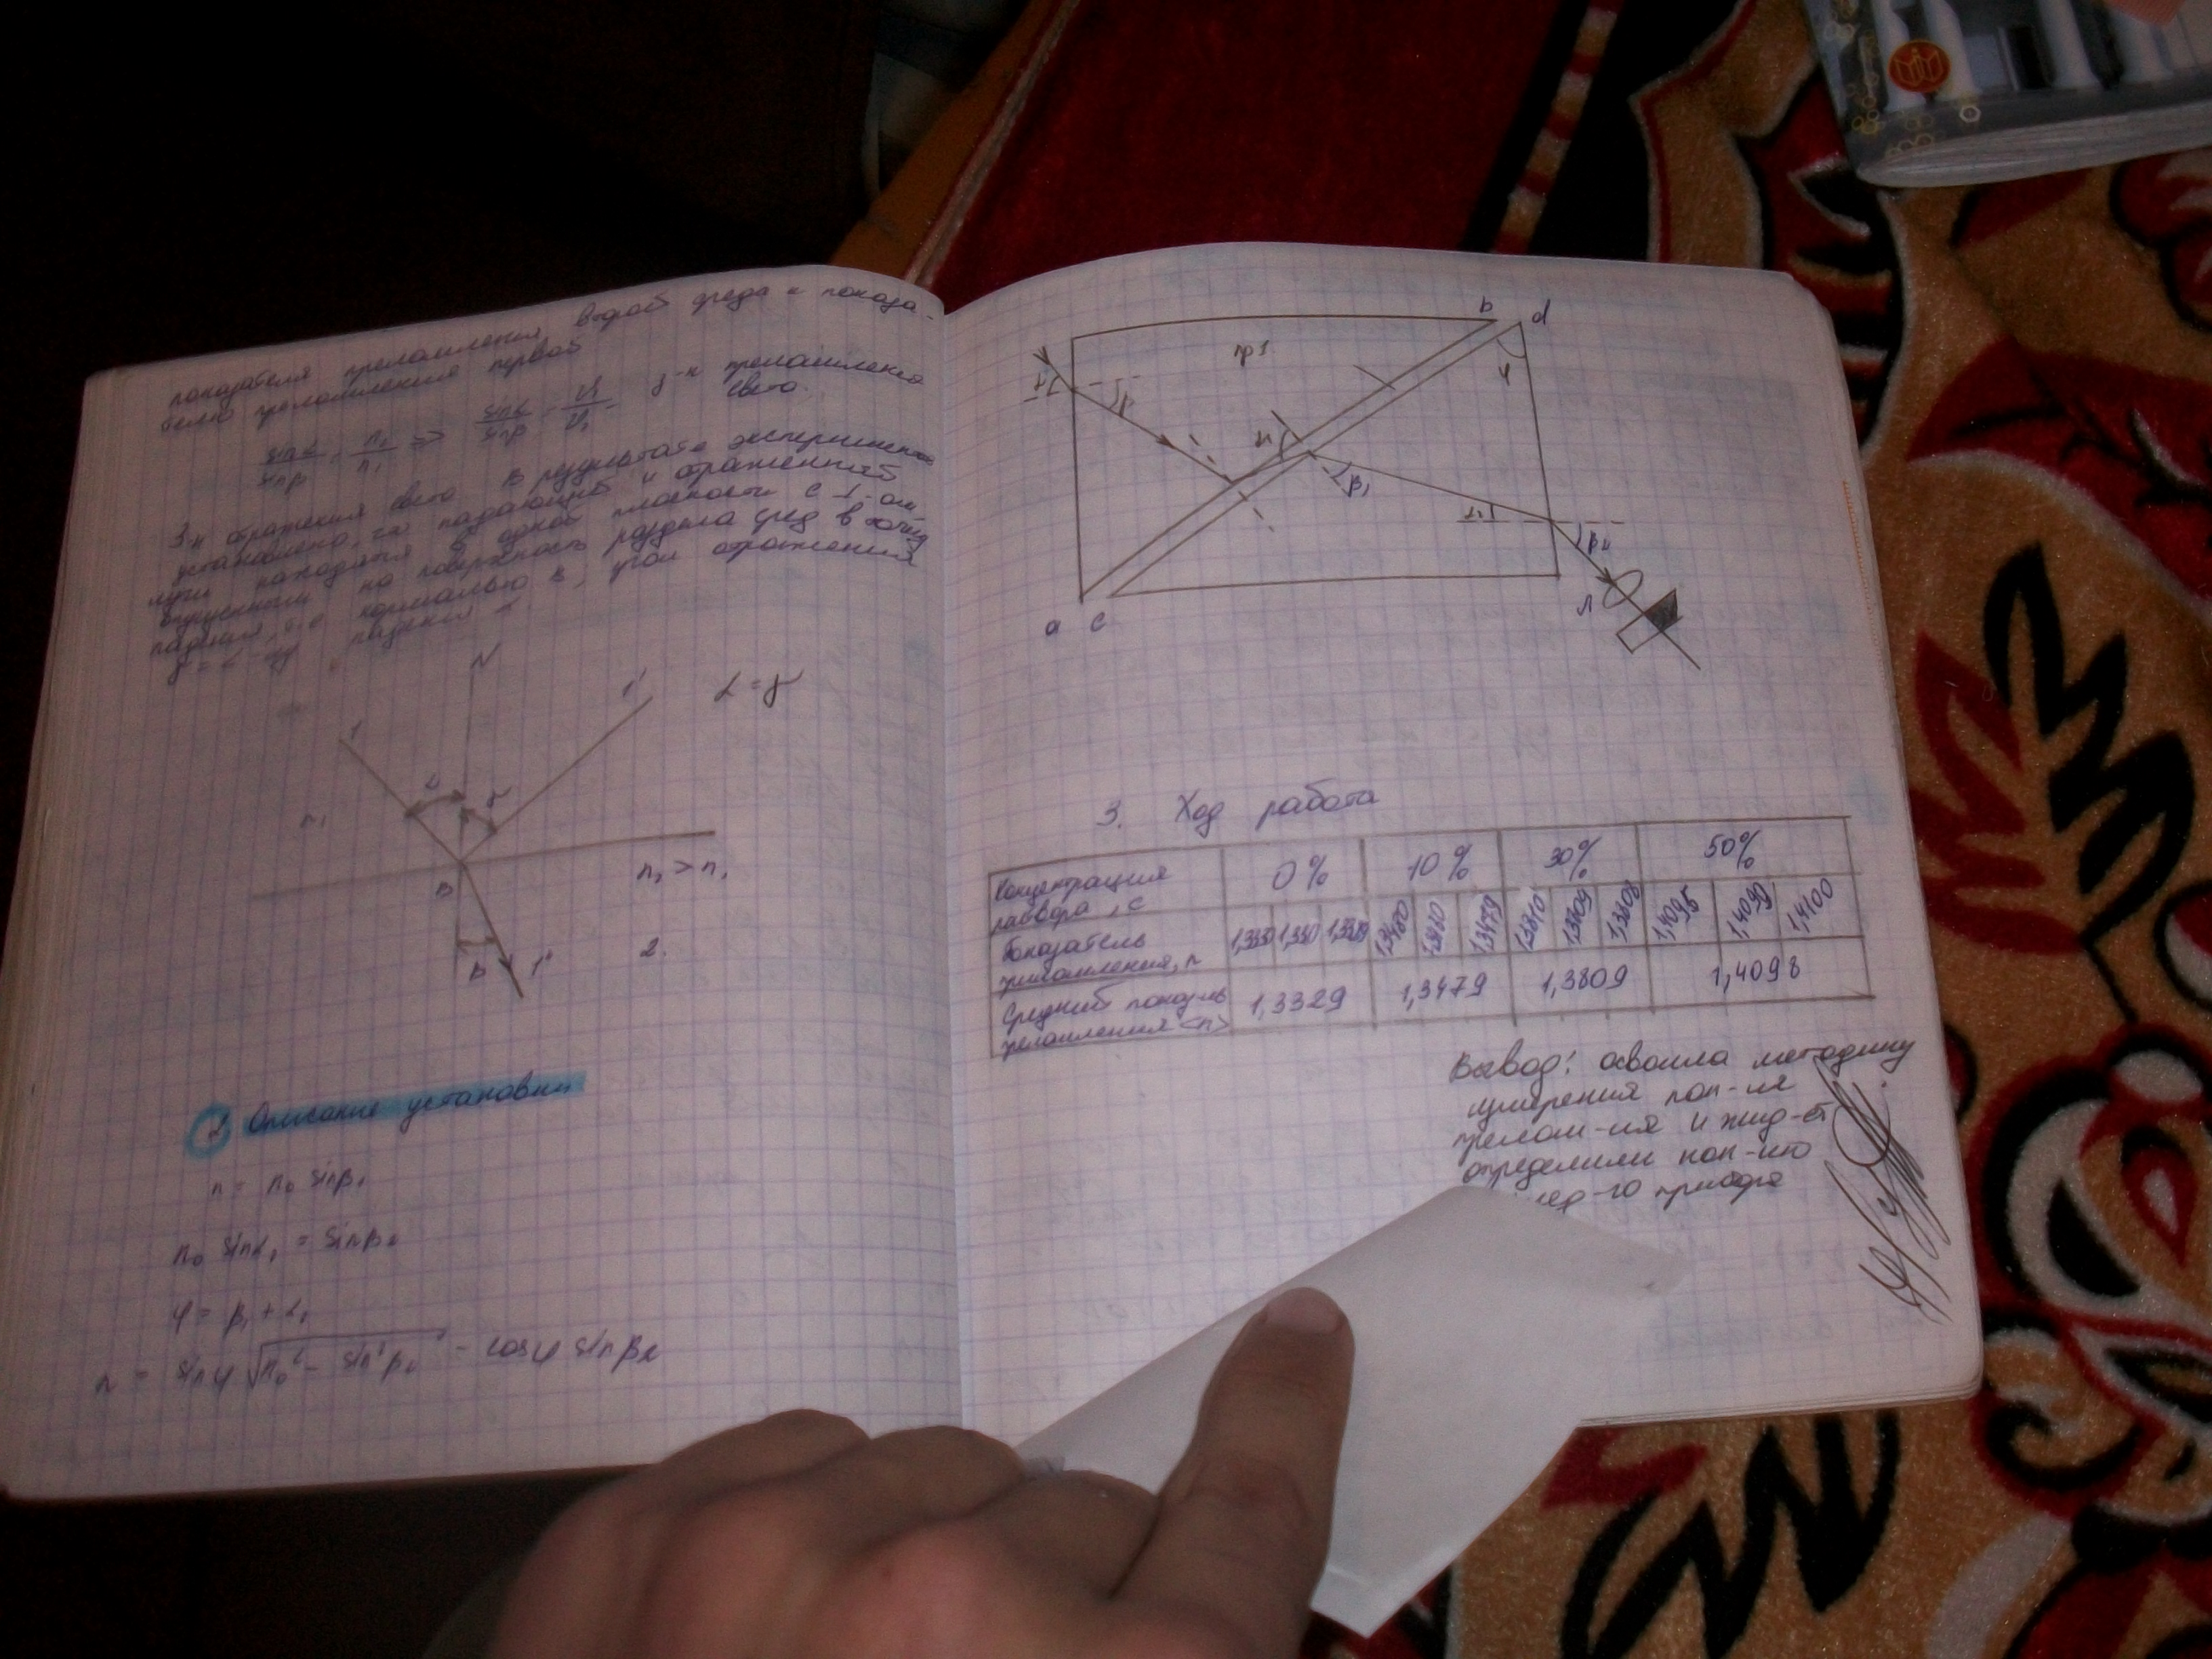 показателя преломления второй среды к показа-
телю преломления первой
sinα/sinβ = n₂/n₁ => sinα/sinβ = υ₁/υ₂ з-н преломления
света.
З-н отражения света В результате эксперимента
установлено, что падающий и отражённый
лучи находятся в одной плоскости с ⊥-ом
опущенным на поверхность раздела сред в точку
падения, т.е нормалью в, угол отражения
γ = α падения
N
1 1' α = γ
α γ
n₁
B n₂ > n₁
β 1" 2.
2 Описание установки
n = n₀ sinβ₁
n₀ sinα₂ = sinβ₂
φ = β₁ + α₂
n = sinφ √n₀² − sin²β₂ − cosφ sinβ₂
b d
пр1
φ
β₁
β₂
Л
a c
3. Ход работа
Концентрация раствора, с 0% 10% 30% 50%
Показатель преломления, n 1,3330 1,330 1,3329 1,3480 1,3480 1,3479 1,3810 1,3809 1,3808 1,4095 1,4099 1,4100
Средний показ-ль преломления <n> 1,3329 1,3479 1,3809 1,4098
Вывод: освоила методику
измерения пок-ля
прелом-ия и жид-ст
определили
приборе